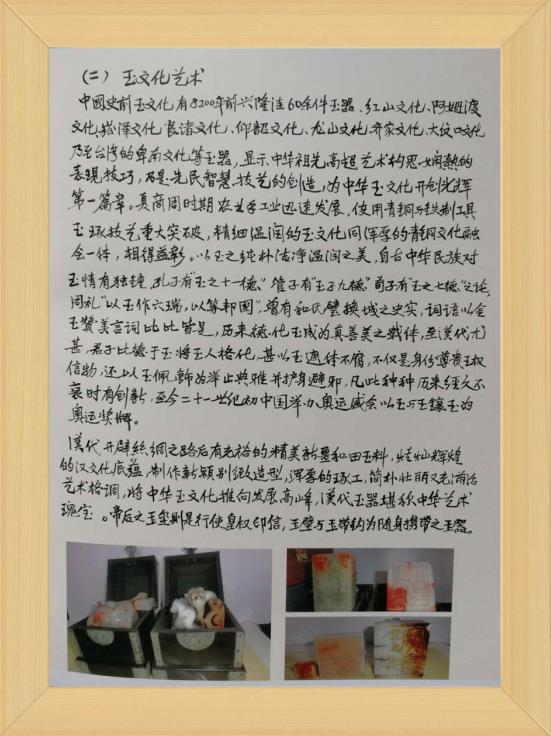 (二) 玉文化艺术
中國史前玉文化有8200年前兴隆洼60余件玉器、红山文化、阿姆渡
文化、崧泽文化、良渚文化、仰韶文化、龙山文化、齐家文化、大纹口文化
乃至台湾的卑南文化等玉器，显示中华祖先高超艺术构思、娴熟的
表现技巧，乃是先民智慧、技艺的创造，为中华玉文化开创光辉
第一篇章。夏商周时期农业手工业迅速发展，使用青铜与铁制工具
玉琢技艺重大突破，精细温润的玉文化同浑厚的青铜文化融
合一体，相得益彰。以玉之纯朴洁净温润之美，自古中华民族对
玉情有独锺，孔子有“玉之十一德”、管子有“玉子九德”、荀子有“玉之七德”之说，
周礼“以玉作六瑞，以等邦國”，曾有和氏璧换城之史实，词语以金
玉赞美言词比比皆是，历来德化玉成为真善美之载体，至漢代尤
甚，君子比德于玉将玉人格化，甚以玉遗体不腐，不仅是身份尊贵王权
信物，还以玉佩飾为举止典雅并护身避邪，凡此种种历来经久不
衰时有创新，至今二十一世纪初中国举办奥运盛会以玉与玉镶玉为
奥运奖牌。
漢代开辟絲绸之路后有充裕的精美新疆和田玉料，灿烂辉煌
的汉文化底蕴，制作新颖别致造型，浑厚的琢工，简朴壮丽又
艺术格调，将中华玉文化推向发展高峰，漢代玉器堪称中华艺术
瑰宝。帝后之玉玺则是行使皇权印信，玉璧与玉带钩为随身携带之玉器。